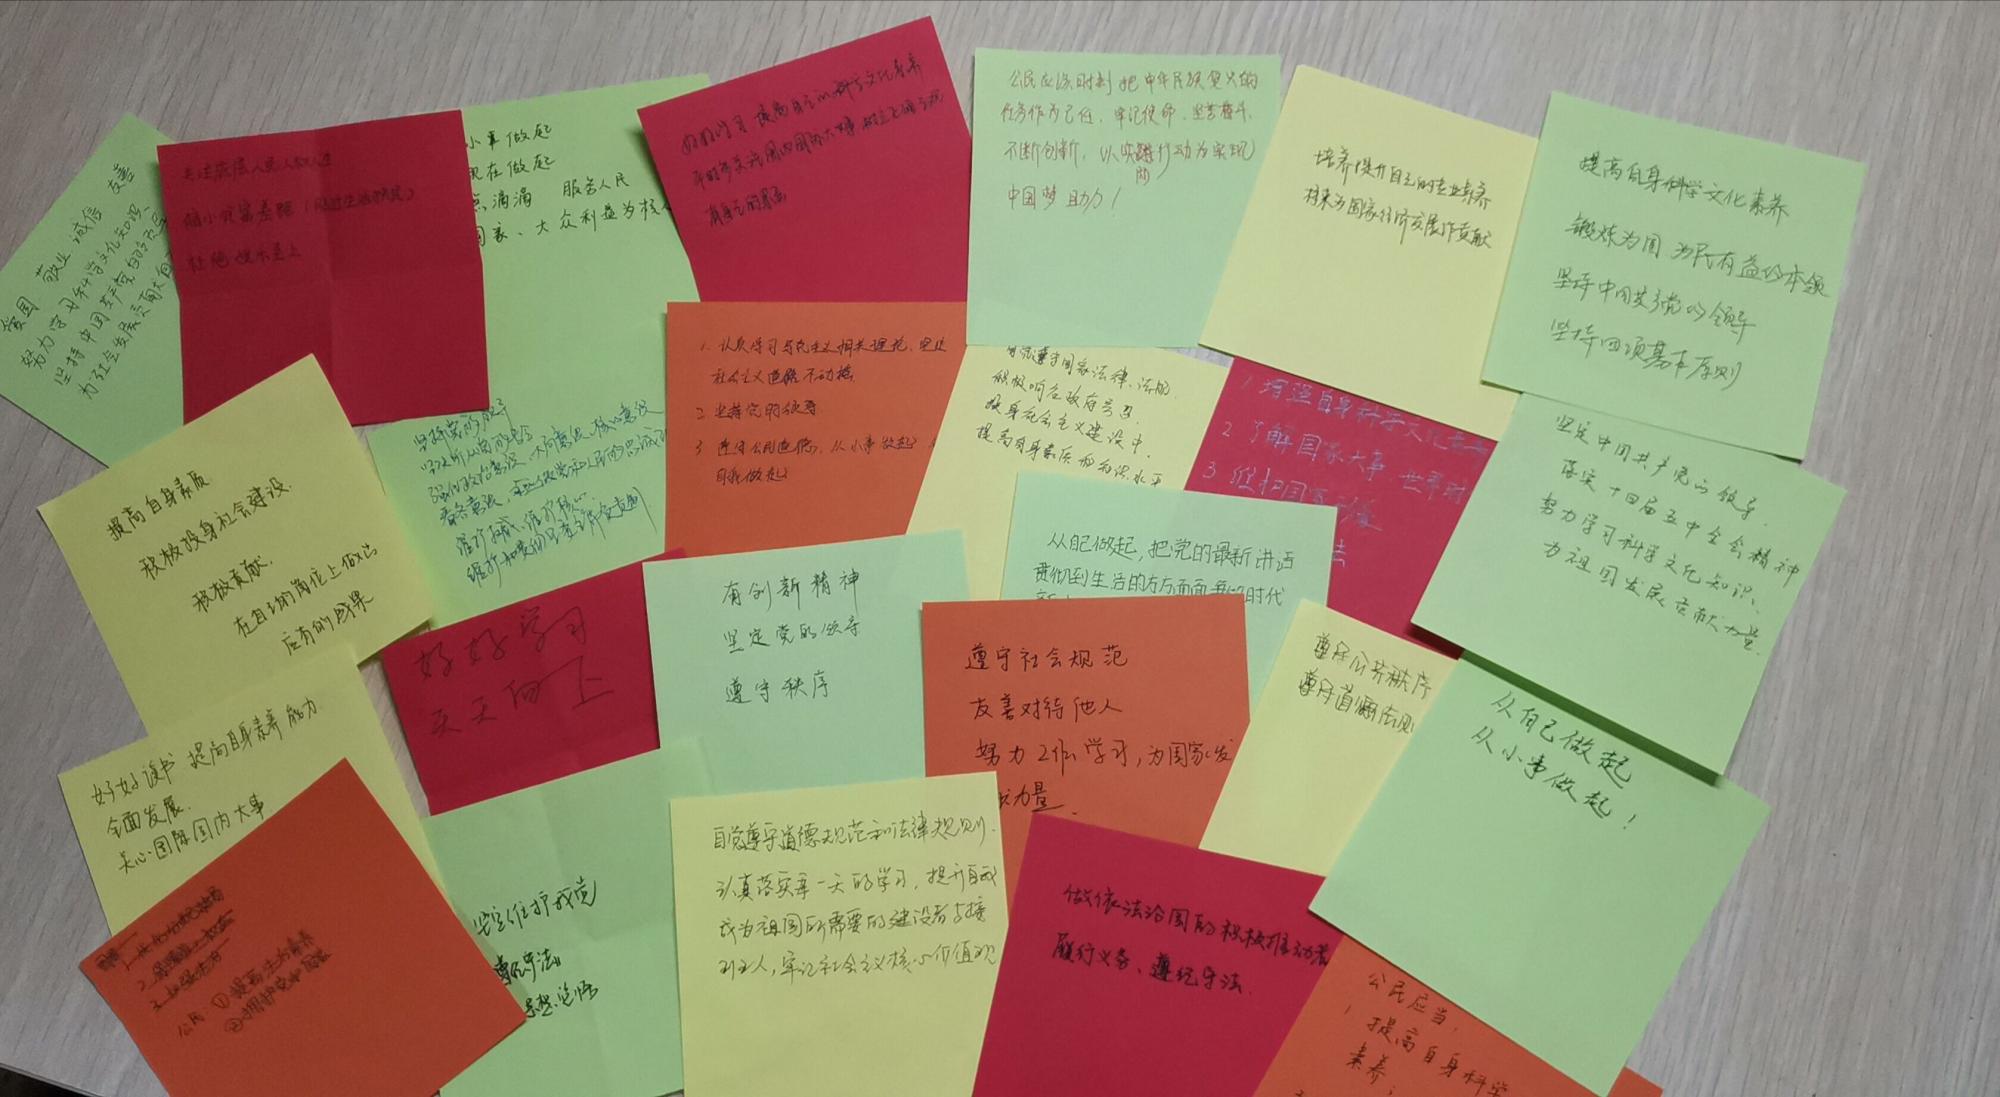 爱国 敬业 诚信 友善
努力学习科学文化知识、
坚持中国共产党的领导
为社会发展贡献
关注底层人民
缩小贫富差距
杜绝娱乐至上
小事做起
现在做起
点滴滴 服务人民
国家、大众利益为核
好好学习 提高自己的科学文化素养
平时多关注国内国际大事 树立正确
有自己的
公民应该时刻把中华民族复兴的
任务作为己任，牢记使命，坚苦奋斗，
不断创新，以实际行动为实现
中国梦助力！
培养提升自己的专业素养
将来为国家经济发展作贡献
提高自身科学文化素养
锻炼为国 为民有益的本领
坚持中国共产党的领导
坚持四项基本原则
1. 认真学习马克思主义相关理论，坚定
社会主义道路不动摇
2 坚持党的领导
3 遵守公民道德，从小事做起
自我做起
自觉遵守国家法律、法规
积极响应政府号召
投身社会主义建设中
提高自身素质和知识水平
1 增强自身科学文化素养
2 了解国家大事 世界时
3 维护国
法
坚定中国共产党的领导，
落实十四届五中全会精神
努力学习科学文化知识、
为祖国发展贡献力量
提高自身素质
积极投身社会建设，
积极贡献，
在自己的岗位上做出
应有的成果
坚持党的领导
维护权威、维护核心
好好学习
天天向上
有创新精神
坚定党的领导
遵守秩序
从自己做起，把党的最新讲话
贯彻到生活的方方面面 时代
遵守社会规范
友善对待他人
努力工作学习，为国家发
力量.
遵守公共秩序
遵守道德法规
从自己做起
从小事做起！
好好读书 提高自身素养能力
全面发展.
关心国际国内大事
公民 ① 提高
② 拥护党
坚定维护我党
遵纪守法
思想觉悟
自觉遵守道德规范和法律规则.
认真落实每一天的学习，提升自我
成为祖国所需要的建设者与接
班人，牢记社会主义核心价值观
做依法治国的积极推动者
履行义务、遵纪守法.
公民应当，
1 提高自身科学
素养；